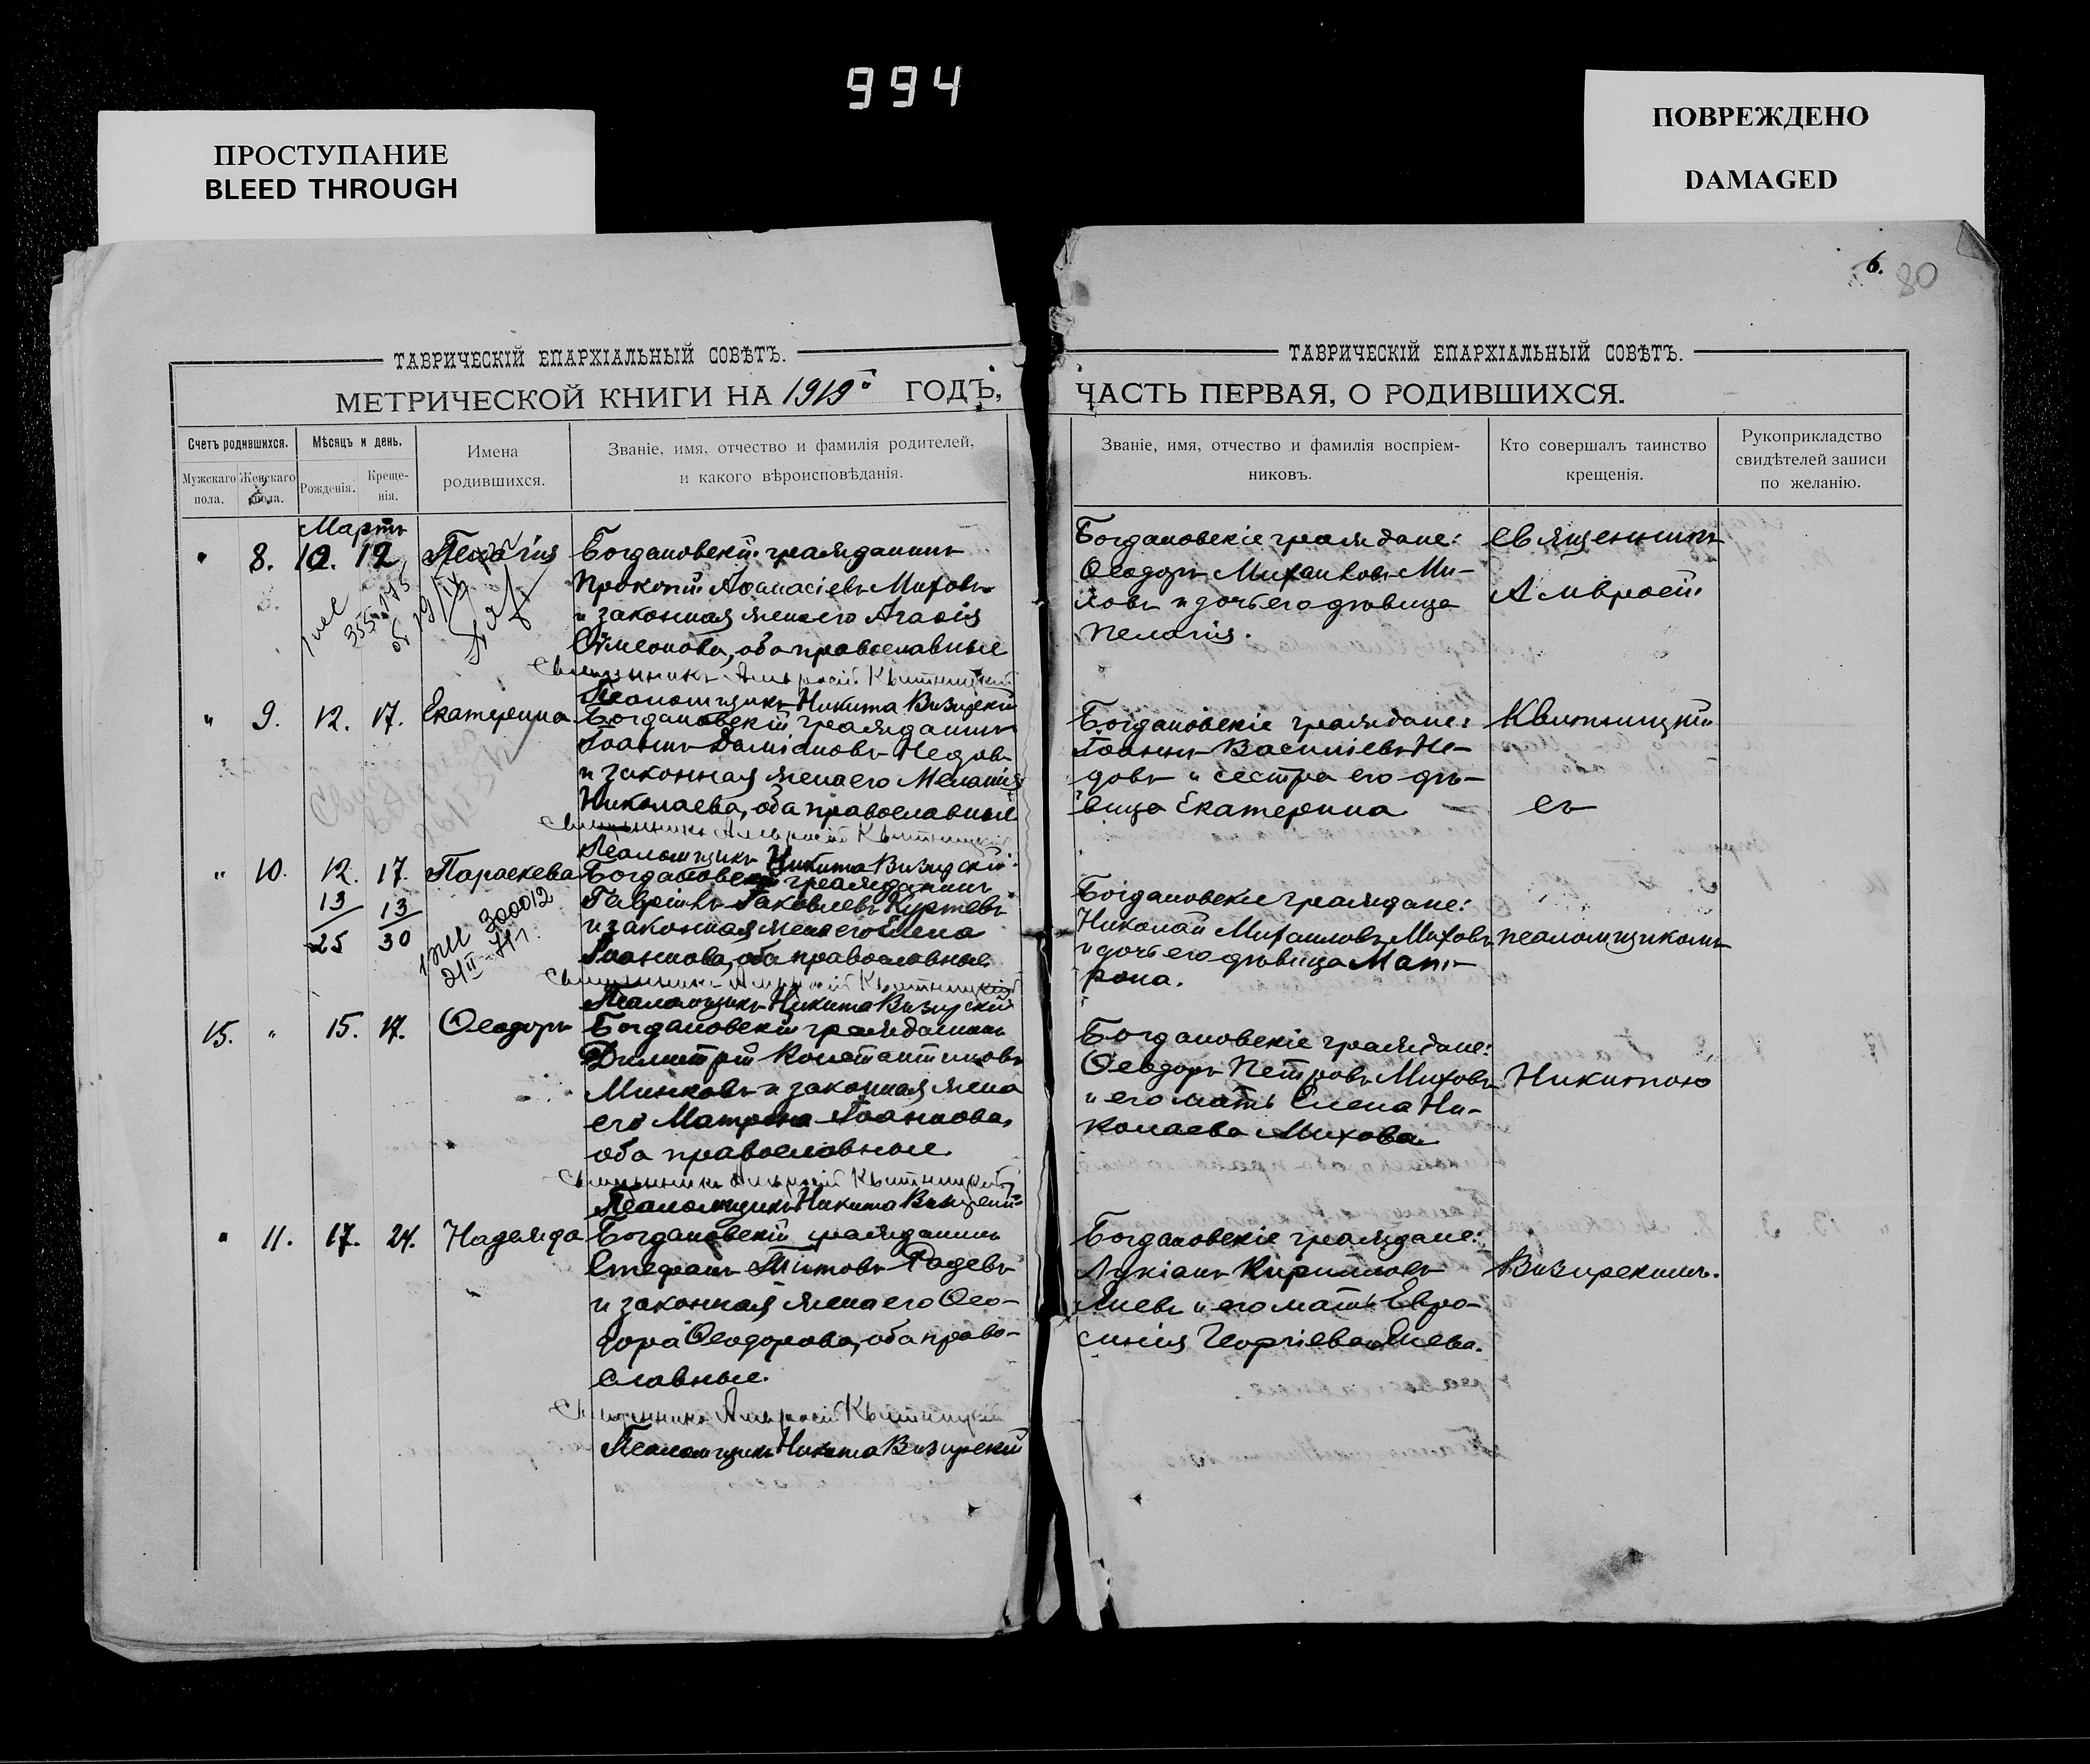 994
ПРОСТУПАНИЕ
BLEED THROUGH
ПОВРЕЖДЕНО
DAMAGED
6.
80
ТАВРИЧЕСКІЙ ЕПАРХІАЛЬНЫЙ СОВѢТЪ.
МЕТРИЧЕСКОЙ КНИГИ НА 1919й ГОДЪ,
Счетъ родившихся.
Мужскаго пола.
Женскаго пола.
Мѣсяцъ и день.
Рожденія.
Креще-
нія.
Имена
родившихся.
Званіе, имя, отчество и фамилія родителей,
и какого вѣроисповѣданія.
Мартъ
" 8. 10. 12. Пелагія
Богдановскій гражданинъ
Прокопій Аѳанасіевъ Миховъ
и законная жена его Агаѳія
Симеонова, оба православные
Священникъ Амвросій Квитницкій
Псаломщикъ Никита Визирскій
" 9. 12. 17. Екатерина
Богдановскій гражданинъ
Іоаннъ Даміановъ Недовъ
и законная жена его Меланія
Николаева, оба православные
Священникъ Амвросій Квитницкій
Псаломщикъ Никита Визирскій
" 10. 12. 17. Параскева
13 13
25 30
300012
21 II
Богдановскій гражданинъ
Гавріилъ Іаковлевъ Куртевъ
и законная жена его Елена
Іоаннова, оба православные
Священникъ Амвросій Квитницкій
Псаломщикъ Никита Визирскій
15. " 15. 17. Ѳеодоръ
Богдановскій гражданинъ
Димитрій Константиновъ
Минковъ и законная жена
его Матрона Іоаннова,
оба православные.
Священникъ Амвросій Квитницкій
Псаломщикъ Никита Визирскій
" 11. 17. 24. Надежда
Богдановскій гражданинъ
Стефанъ Титовъ Радевъ
и законная жена его Ѳео-
дора Ѳеодорова, оба право-
славные.
Священникъ Амвросій Квитницкій
Псаломщикъ Никита Визирскій
ТАВРИЧЕСКІЙ ЕПАРХІАЛЬНЫЙ СОВѢТЪ.
ЧАСТЬ ПЕРВАЯ, О РОДИВШИХСЯ.
Званіе, имя, отчество и фамилія воспріем-
никовъ.
Кто совершалъ таинство
крещенія.
Рукоприкладство
свидѣтелей записи
по желанію.
Богдановскіе граждане:
Ѳеодоръ Михаиловъ Ми-
ховъ и дочь его дѣвица
Пелагія.
Богдановскіе граждане:
Іоаннъ Василіевъ Не-
довъ и сестра его дѣ-
вица Екатерина
Богдановскіе граждане:
Николай Михаиловъ Миховъ
и дочь его дѣвица Мат-
рона.
Богдановскіе граждане:
Ѳеодоръ Петровъ Миховъ
и его мать Елена Ни-
колаева Михова
Богдановскіе граждане:
Лукіанъ Кирилловъ
Яневъ и его мать Евро-
синія Георгіева Янева.
священникъ
Амвросій
Квитницкій
съ
псаломщикомъ
Никитою
Визирскимъ.